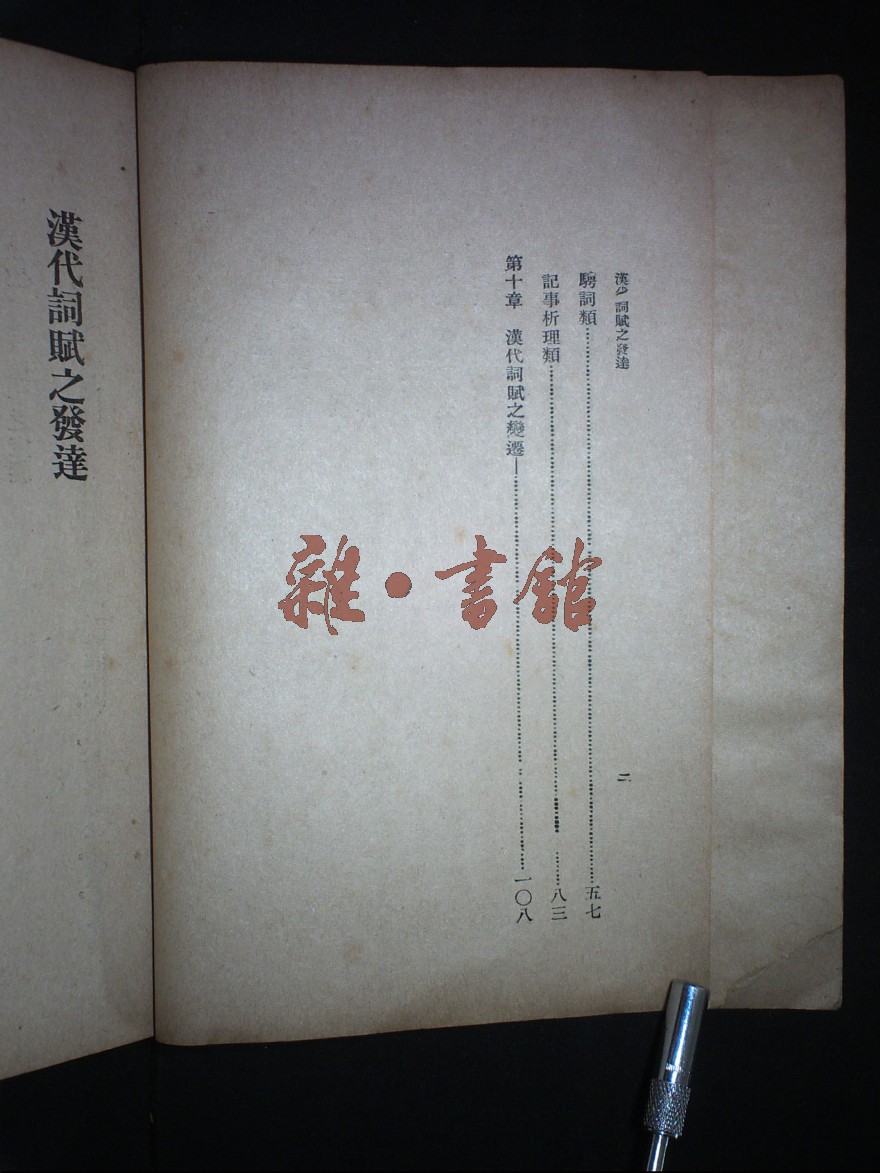 漢代詞賦之發達
二
騁詞類……五七
記事析理類……八三
第十章 漢代詞賦之變遷……一〇八
雜·書館
漢代詞賦之發達